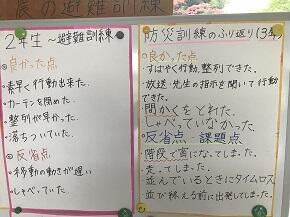 の避難訓練
2年生 ~避難訓練~
◎良かった点
・素早く行動出来た。
・カーテンを閉めた。
・整列が早かった。
・落ちついていた。
◎反省点
・移動の動きが遅い
・しゃべっていた。
防災訓練のふり返り(3年)
◎良かった点
・すばやく行動、整列できた。
・放送・先生の指示を聞いて行動できた。
・間かくをとれた。
・しゃべっていなかった。
◎反省点・課題点
・階段で密になってしまった。
・走ってしまった。
・並んでいるときにタイムロス
・並び終える前に出発してしまった。